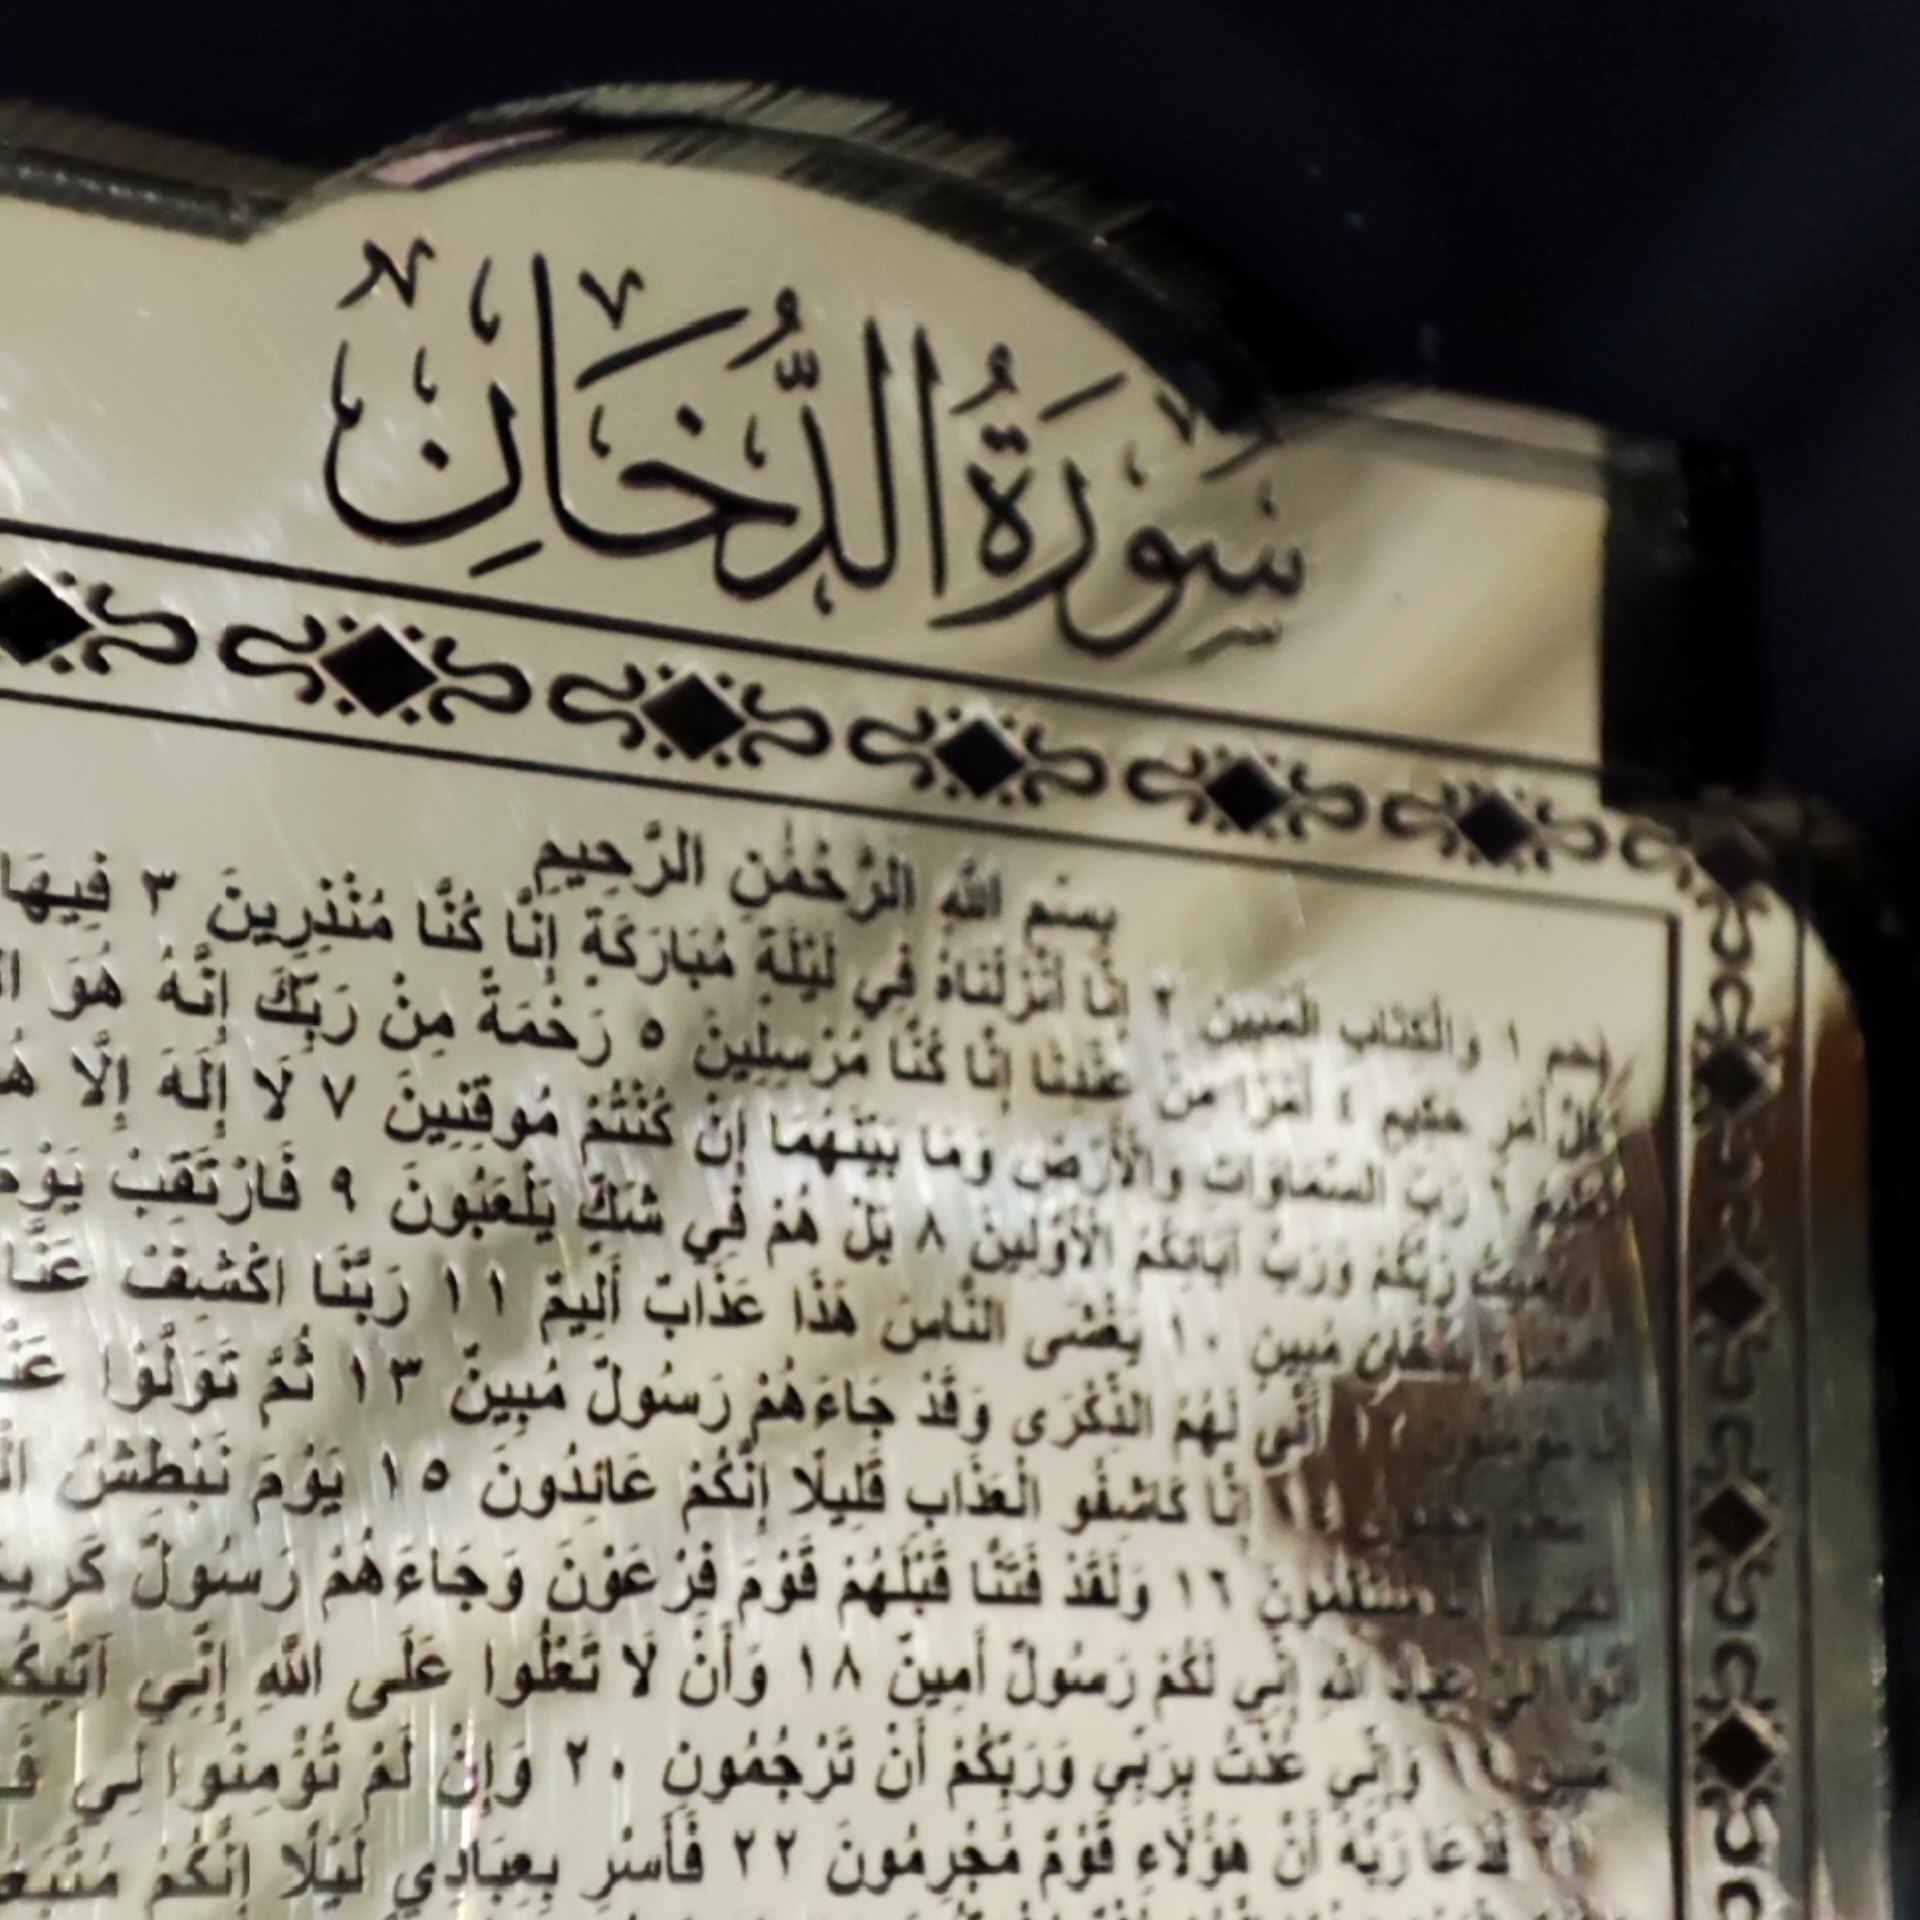 سُورَةُ الدُّخَانِ
بِسْمِ اللَّهِ الرَّحْمَٰنِ الرَّحِيمِ
حم ١ وَالْكِتَابِ الْمُبِينِ ٢ إِنَّا أَنْزَلْنَاهُ فِي لَيْلَةٍ مُبَارَكَةٍ إِنَّا كُنَّا مُنْذِرِينَ ٣ فِيهَا
كُلُّ أَمْرٍ حَكِيمٍ ٤ أَمْرًا مِنْ عِنْدِنَا إِنَّا كُنَّا مُرْسِلِينَ ٥ رَحْمَةً مِنْ رَبِّكَ إِنَّهُ هُوَ
الْعَلِيمُ ٦ رَبِّ السَّمَاوَاتِ وَالْأَرْضِ وَمَا بَيْنَهُمَا إِنْ كُنْتُمْ مُوقِنِينَ ٧ لَا إِلَهَ إِلَّا
وَيُمِيتُ رَبُّكُمْ وَرَبُّ آبَائِكُمُ الْأَوَّلِينَ ٨ بَلْ هُمْ فِي شَكٍّ يَلْعَبُونَ ٩ فَارْتَقِبْ يَوْمَ
بِدُخَانٍ مُبِينٍ ١٠ يَغْشَى النَّاسَ هَذَا عَذَابٌ أَلِيمٌ ١١ رَبَّنَا اكْشِفْ عَنَّا
أَنَّى لَهُمُ الذِّكْرَى وَقَدْ جَاءَهُمْ رَسُولٌ مُبِينٌ ١٣ ثُمَّ تَوَلَّوْا
إِنَّا كَاشِفُو الْعَذَابِ قَلِيلًا إِنَّكُمْ عَائِدُونَ ١٥ يَوْمَ نَبْطِشُ
١٦ وَلَقَدْ فَتَنَّا قَبْلَهُمْ قَوْمَ فِرْعَوْنَ وَجَاءَهُمْ رَسُولٌ كَرِيمٌ
أَدُّوا إِلَيَّ عِبَادَ اللَّهِ إِنِّي لَكُمْ رَسُولٌ أَمِينٌ ١٨ وَأَنْ لَا تَعْلُوا عَلَى اللَّهِ إِنِّي آتِيكُمْ
مُبِينٍ ١٩ وَإِنِّي عُذْتُ بِرَبِّي وَرَبِّكُمْ أَنْ تَرْجُمُونِ ٢٠ وَإِنْ لَمْ تُؤْمِنُوا لِي
فَدَعَا رَبَّهُ أَنَّ هَؤُلَاءِ قَوْمٌ مُجْرِمُونَ ٢٢ فَأَسْرِ بِعِبَادِي لَيْلًا إِنَّكُمْ